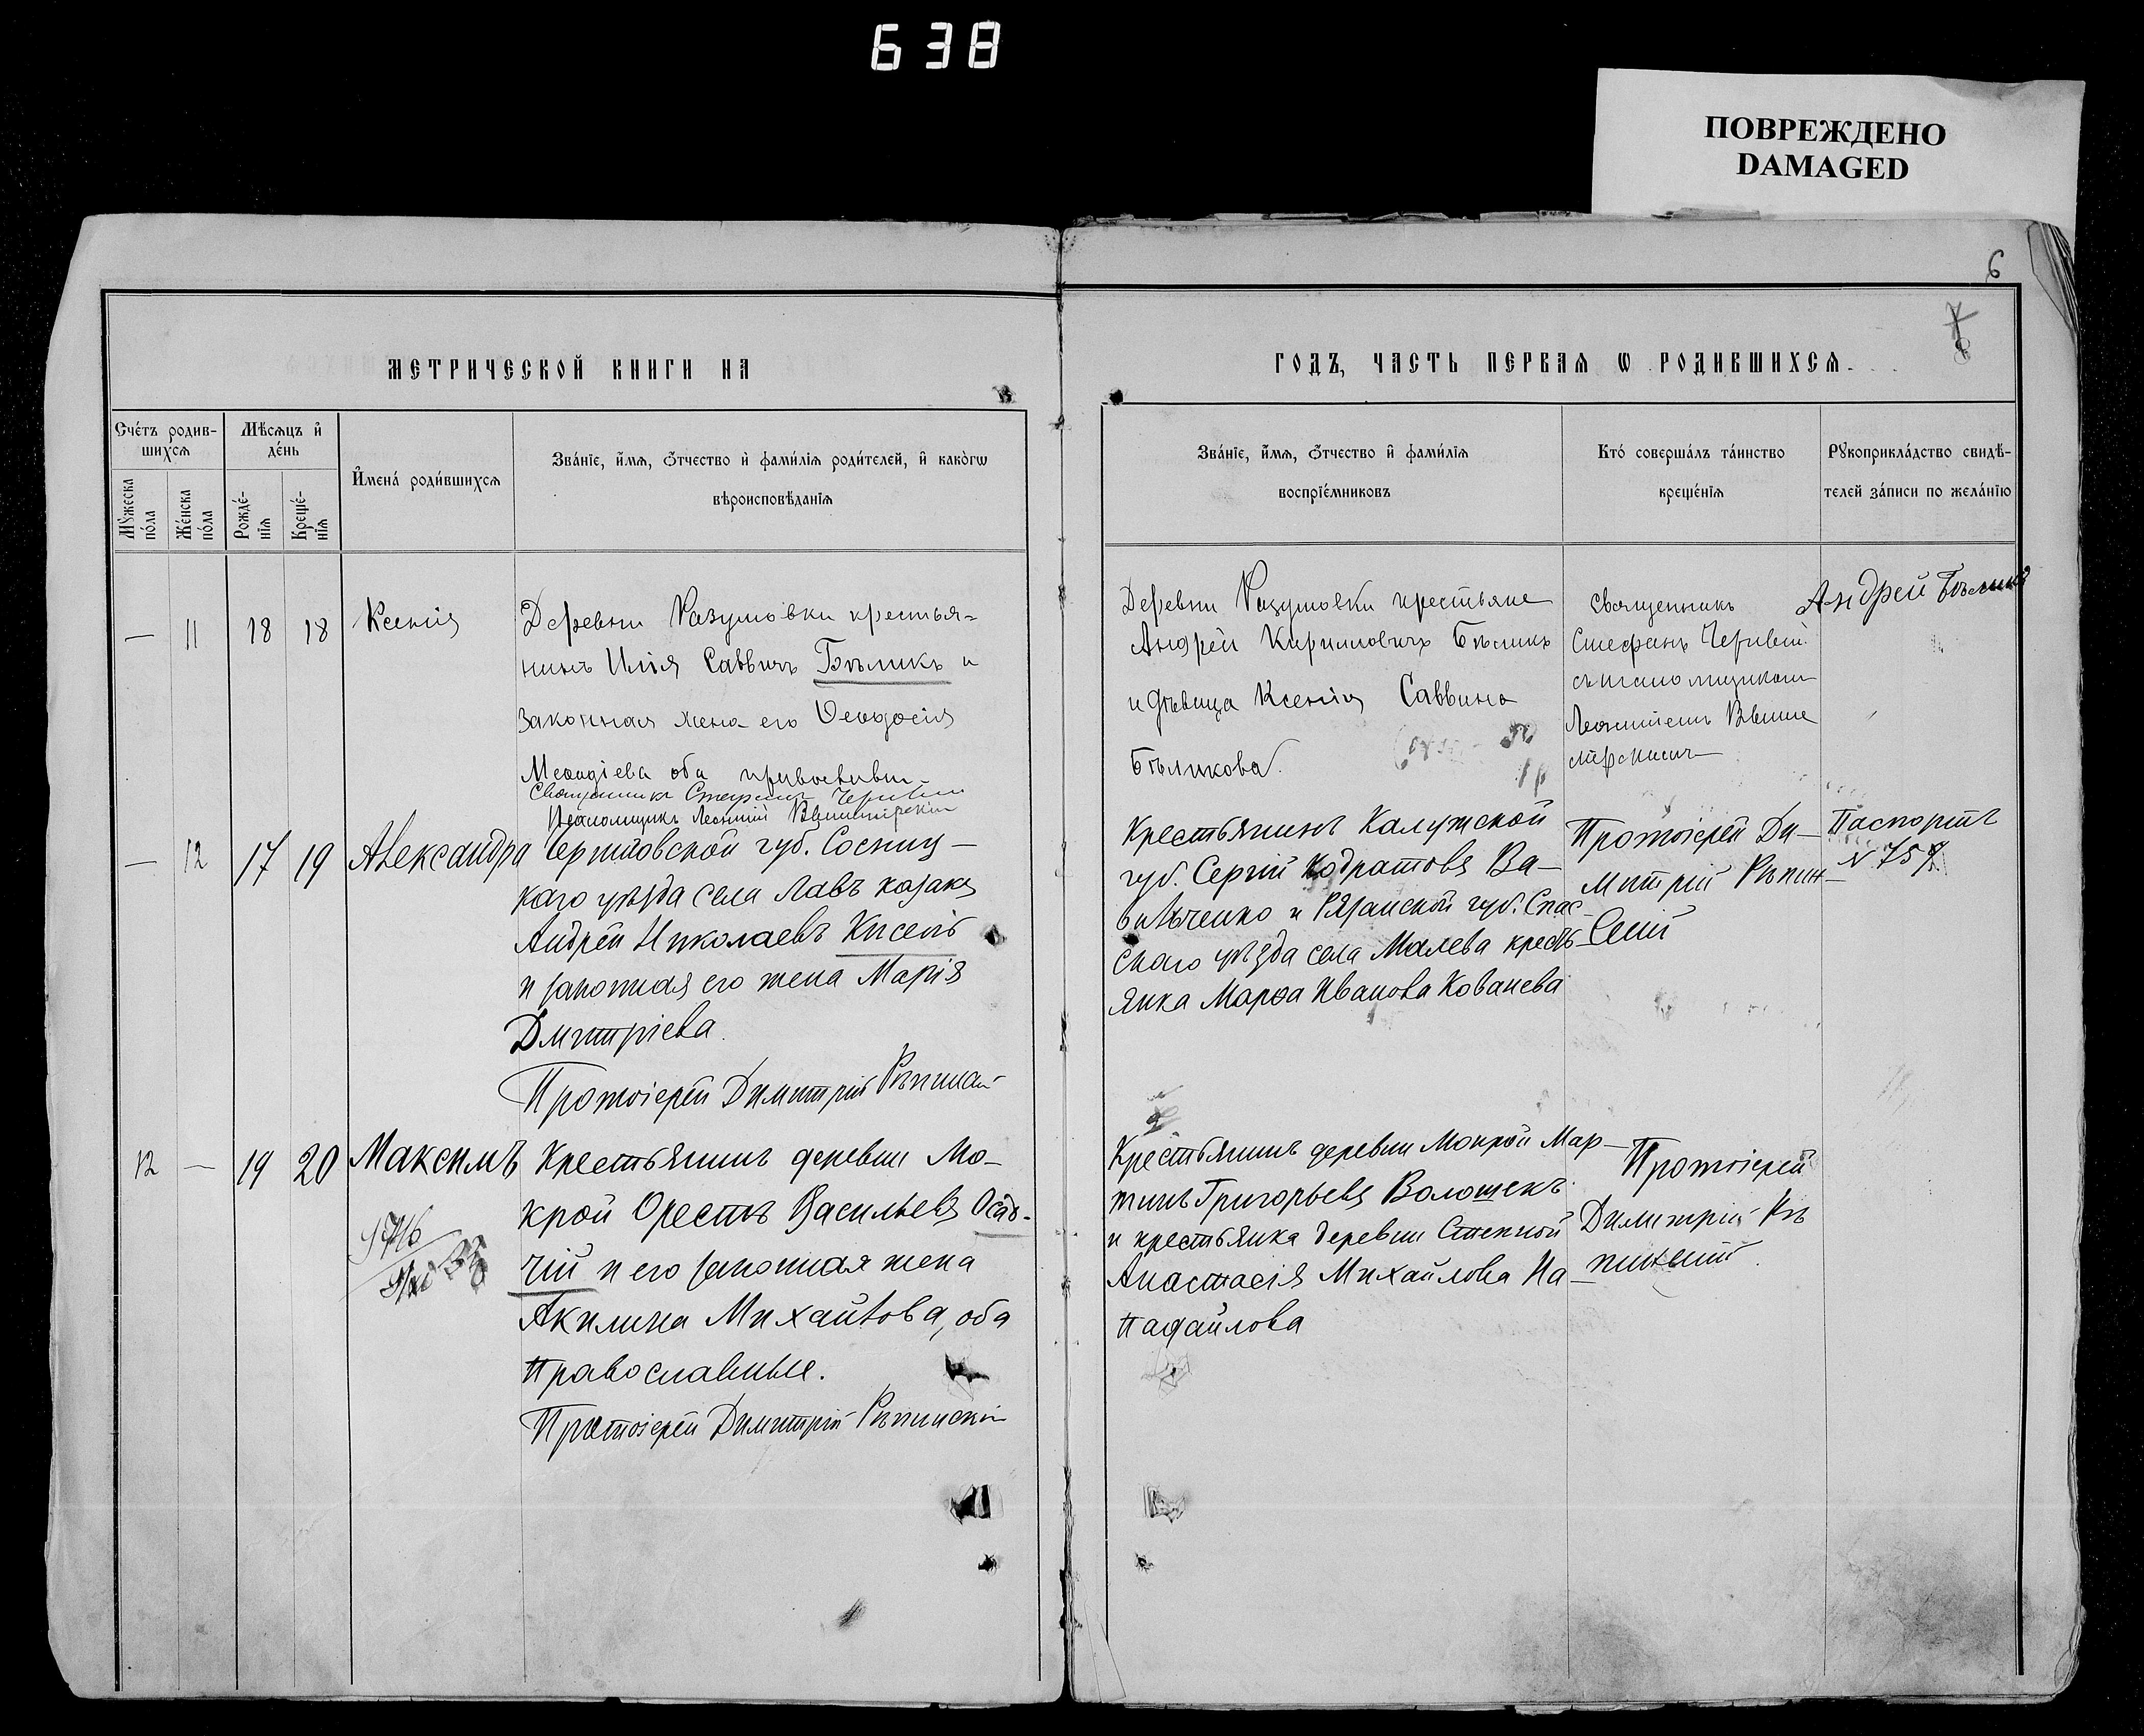 638
ПОВРЕЖДЕНО
DAMAGED
6
МЕТРИЧЕСКОЙ КНИГИ НА
ГОДЪ, ЧАСТЬ ПЕРВАЯ Ѡ РОДИВШИХСЯ.
Счетъ родив-
шихся
Мѣсяцъ и
день
Мужеска
пола
Женска
пола
Рожде-
нія
Креще-
нія
Имена родившихся
Званіе, имя, отчество и фамилія родителей, и какогѡ
вѣроисповѣданія
Званіе, имя, отчество и фамилія
воспріемниковъ
Кто совершалъ таинство
крещенія
Рукоприкладство свидѣ-
телей записи по желанію
— 11 18 18 Ксенія
Деревни Разумовки крестья-
нинъ Илія Саввичъ Бѣликъ и
законная жена его Ѳеодосія
Меѳодіева оба
Священникъ Стефанъ
Псаломщикъ Леонтій
Деревни Разумовки крестьяне
Андрей Кириловичъ Бѣликъ
и дѣвица Ксенія Саввина
Бѣликова.
Священникъ
Стефанъ
съ псаломщикомъ
Леонтіемъ
Андрей Бѣликъ
— 12 17 19 Александра
Черниговской губ. Сосниц-
каго уѣзда села Лавъ козакъ
Андрей Николаевъ Кисель
и законная его жена Марія
Дмитріева.
Протоіерей Димитрій Рѣпинскій
Крестьянинъ Калужской
губ. Сергій Кодратовъ Ва-
и Рязанской губ. Спас-
скаго уѣзда села Малева кресть-
янка Марѳа Иванова Кованева
Протоіерей Ди-
митрій Рѣпин-
скій
Паспортъ
N 757
12 — 19 20 Максимъ
Крестьянинъ деревни Мо-
крой Орестъ Васильевъ Осад-
чій и его законная жена
Акилина Михайлова, оба
православные.
Протоіерей Димитрій Рѣпинскій
Крестьянинъ деревни Мокрой Мар-
тинъ Григорьевъ Волошекъ
и крестьянка деревни Степной
Анастасія Михайлова На-
падайлова
Протоіерей
Димитрій Рѣ-
пинскій